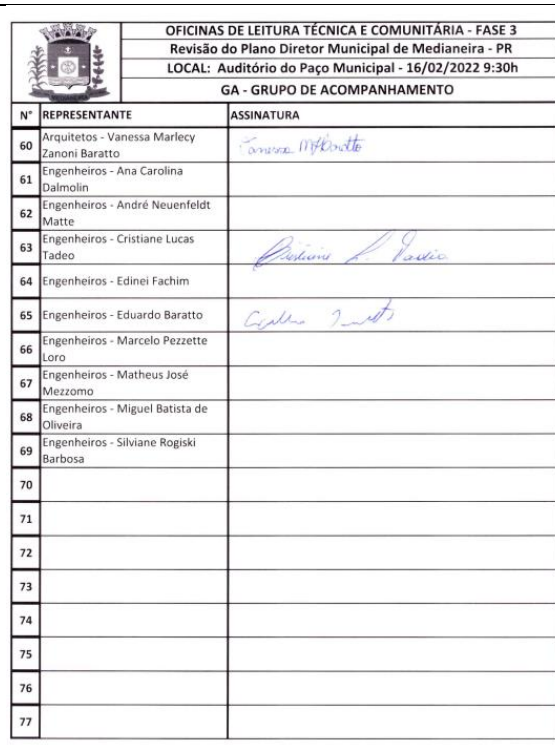 OFICINAS DE LEITURA TÉCNICA E COMUNITÁRIA - FASE 3
Revisão do Plano Diretor Municipal de Medianeira - PR
LOCAL: Auditório do Paço Municipal - 16/02/2022 9:30h
GA - GRUPO DE ACOMPANHAMENTO
N° REPRESENTANTE ASSINATURA
60 Arquitetos - Vanessa Marlecy
Zanoni Baratto
61 Engenheiros - Ana Carolina
Dalmolin
62 Engenheiros - André Neuenfeldt
Matte
63 Engenheiros - Cristiane Lucas
Tadeo
64 Engenheiros - Edinei Fachim
65 Engenheiros - Eduardo Baratto
66 Engenheiros - Marcelo Pezzette
Loro
67 Engenheiros - Matheus José
Mezzomo
68 Engenheiros - Miguel Batista de
Oliveira
69 Engenheiros - Silviane Rogiski
Barbosa
70
71
72
73
74
75
76
77